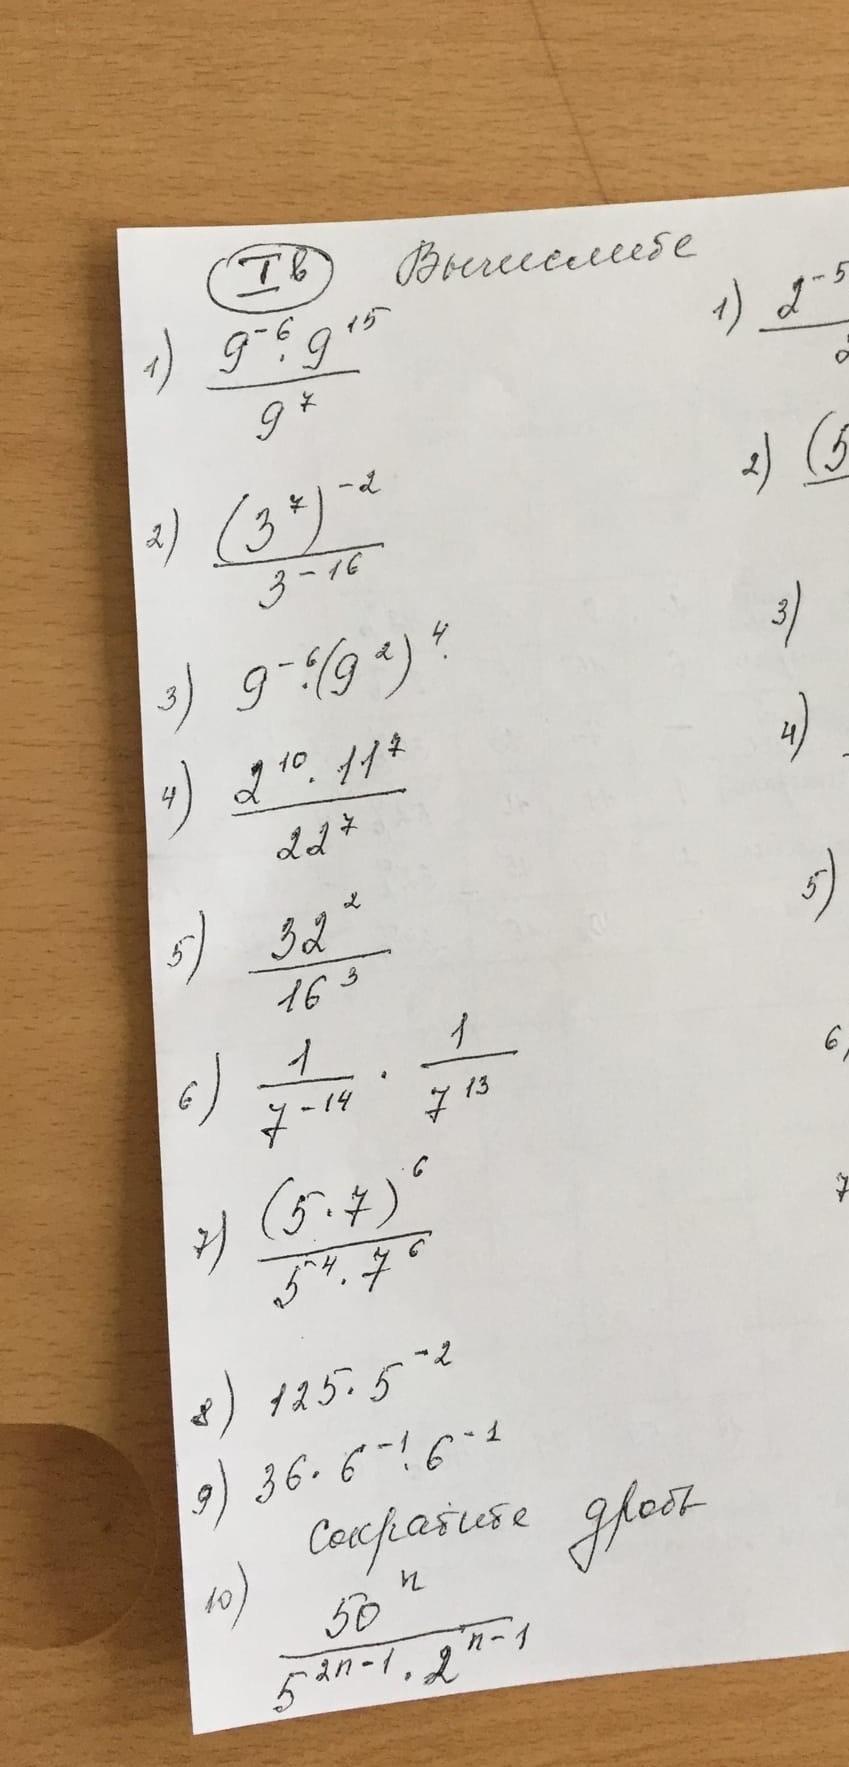 I в Вычислите
1) \frac{9^{-6} \cdot 9^{15}}{9^{7}}
2) \frac{(3^{7})^{-2}}{3^{-16}}
3) 9^{-6} \cdot (9^{2})^{4}.
4) \frac{2^{10} \cdot 11^{7}}{22^{7}}
5) \frac{32^{2}}{16^{3}}
6) \frac{1}{7^{-14}} \cdot \frac{1}{7^{13}}
7) \frac{(5 \cdot 7)^{6}}{5^{4} \cdot 7^{6}}
8) 125 \cdot 5^{-2}
9) 36 \cdot 6^{-1} \cdot 6^{-1}
Сократите дробь
10) \frac{50^{n}}{5^{2n-1} \cdot 2^{n-1}}
1) 2^{-5}
2) (5
3)
4)
5)
6)
7